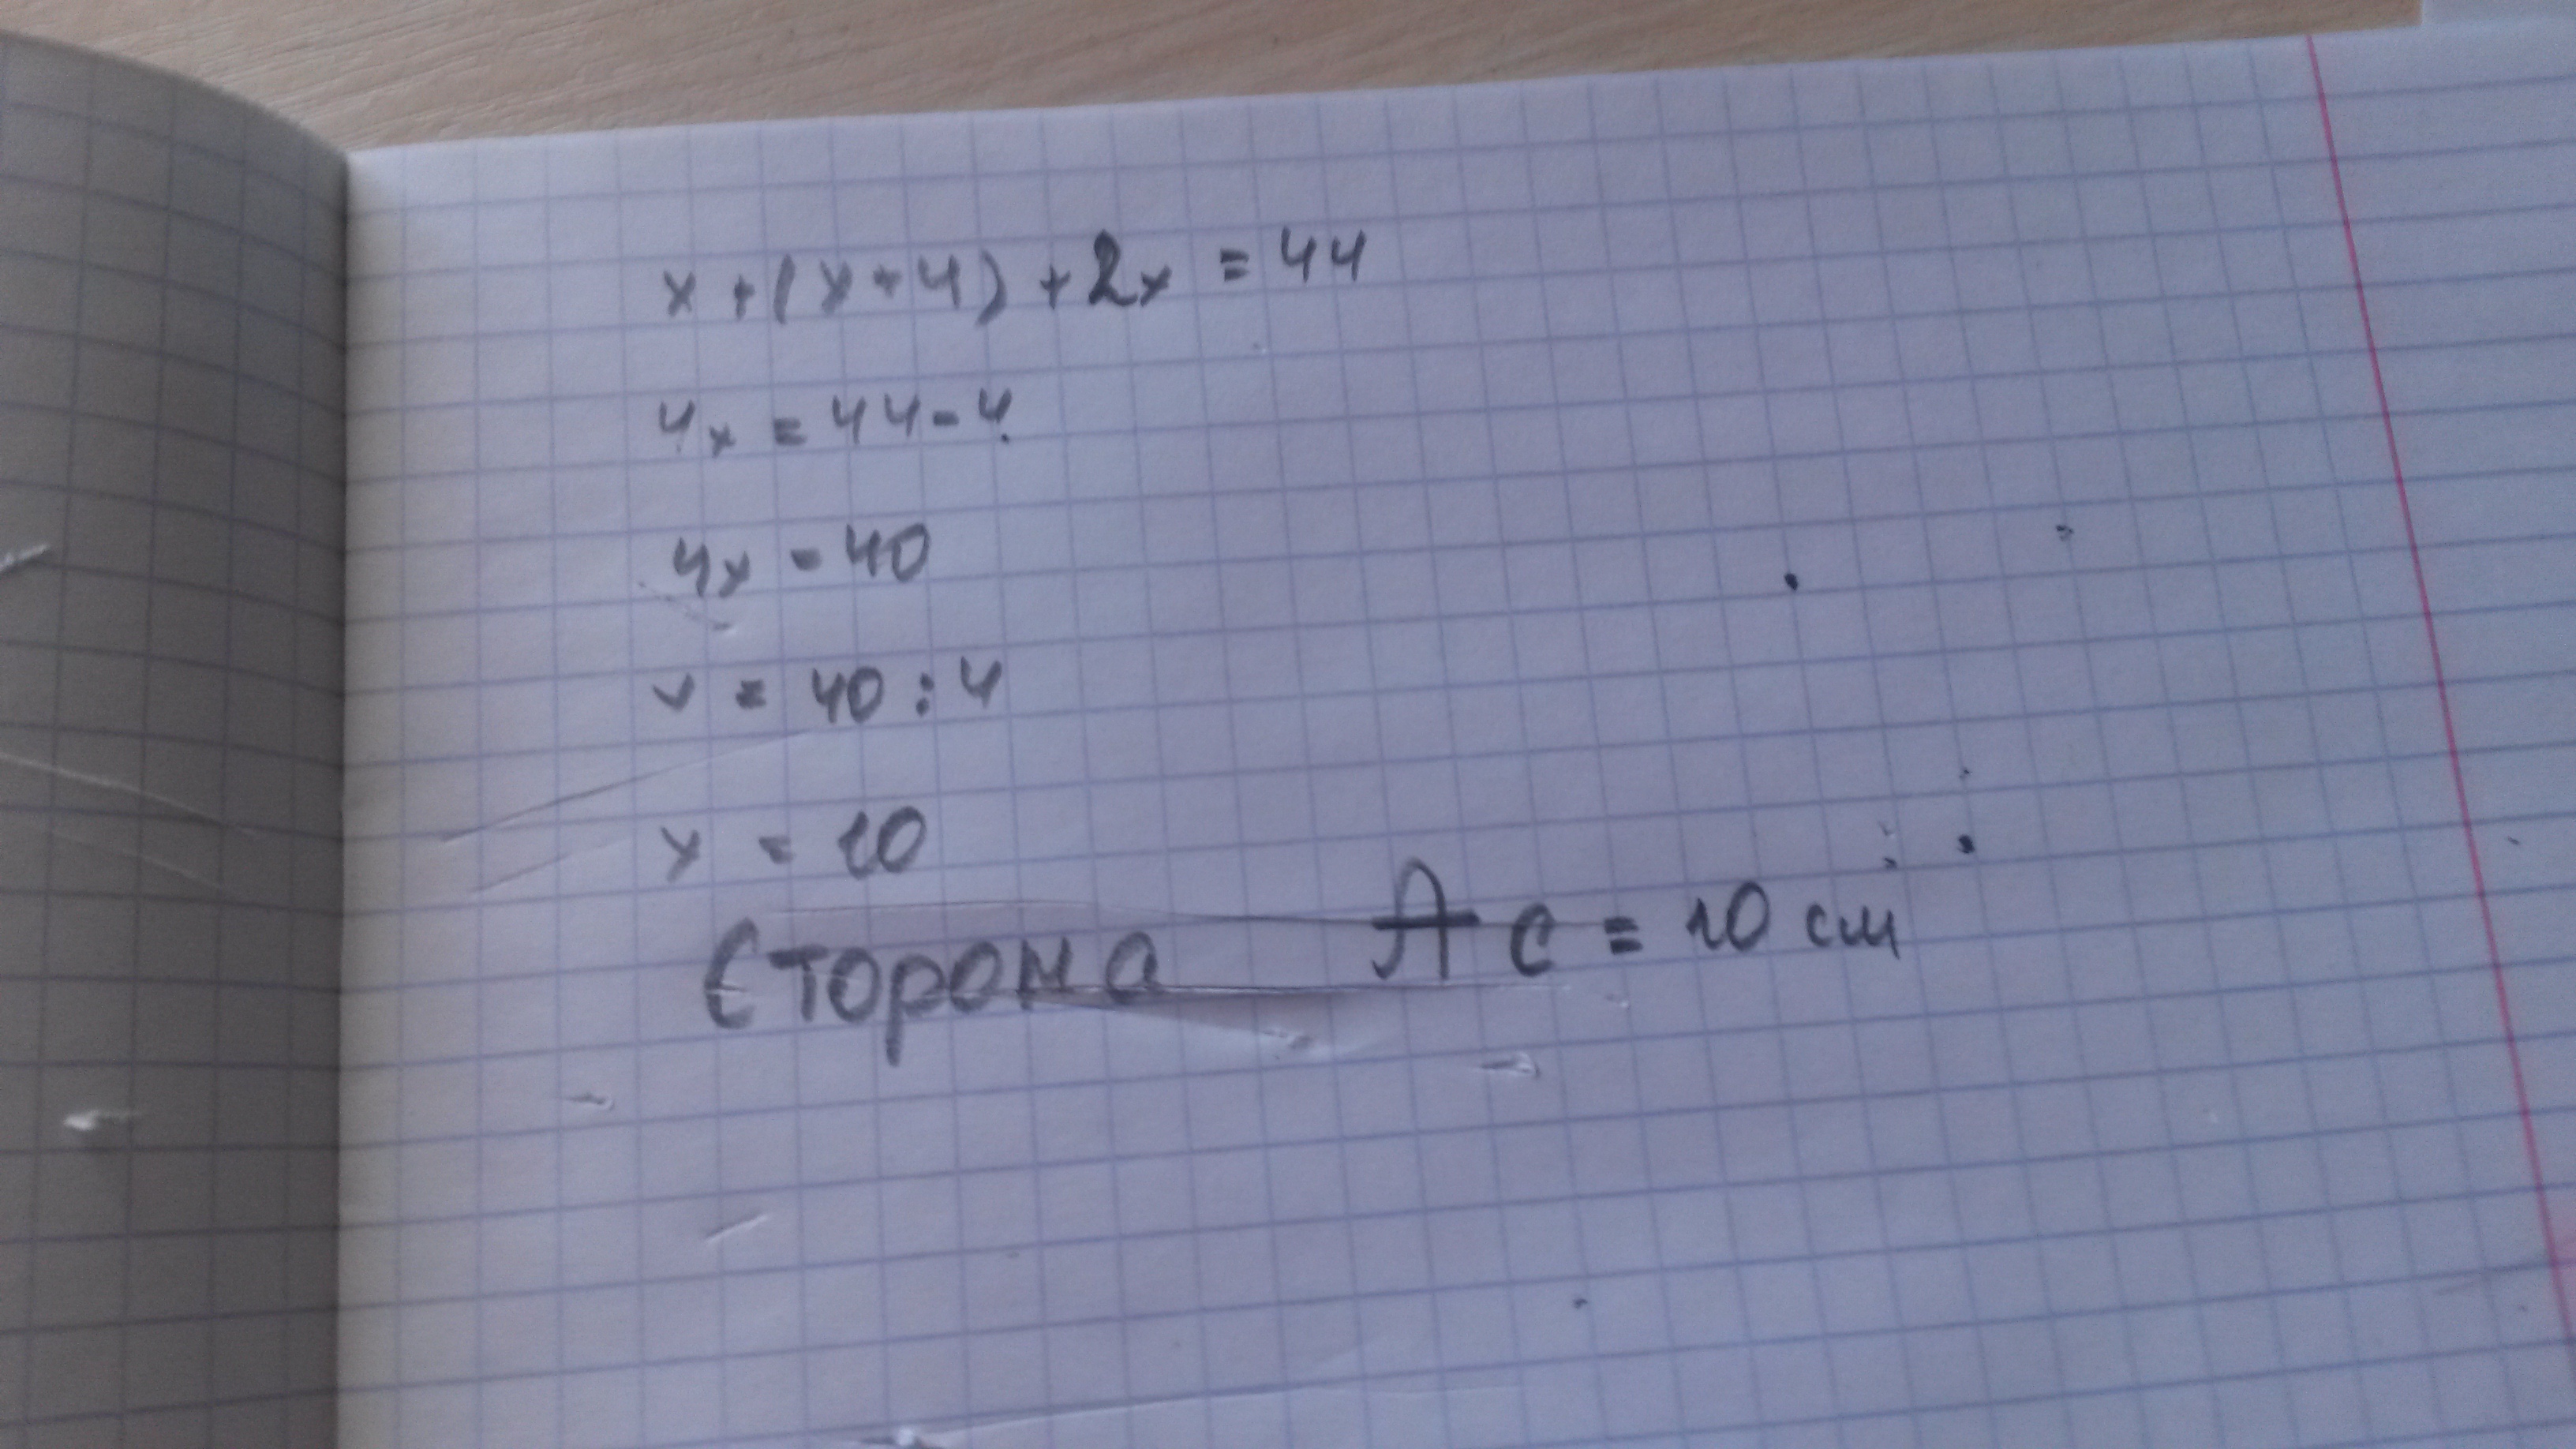 x + (x + 4) + 2x = 44
4x = 44 - 4
4x = 40
x = 40 : 4
x = 10
Сторона АС = 10 см